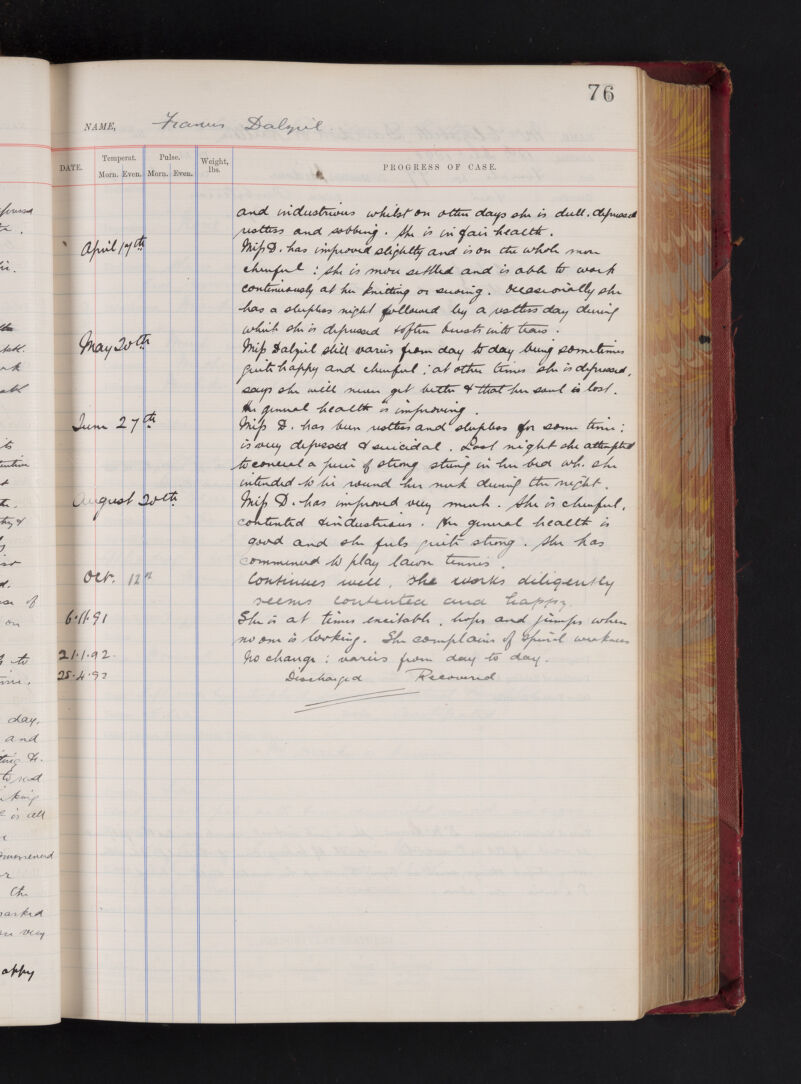 76
NAME, Frances Dalziel
DATE. Temperat. Morn. Even. Pulse. Morn. Even. Weight, lbs. PROGRESS OF CASE.
and industrious whilst on other days she is dull, depressed
restless and sobbing. She is in fair health.
April 17th Miss D. has improved slightly and is on the whole more
cheerful: she is more settled and is able to work
continuously at her knitting or sewing. Occasionally she
has a sleepless night followed by a restless day during
which she is depressed & often bursts into tears.
May 20th Miss Dalziel still varies from day to day being sometimes
quite happy and cheerful; at other times she is depressed,
says she will never get better & that her soul is lost.
Her general health is improving.
June 27th Miss D. has been restless and sleepless for some time:
is very depressed & suicidal. Last night she attempted
to conceal a piece of strong string in her bed wh. she
intended to tie round her neck during the night.
August 20th Miss D. has improved very much. She is cheerful,
contented & industrious. Her general health is
good and she feels quite strong. She has
commenced to play lawn tennis.
Oct. 12th Continues well, she works diligently
seems contented and happy.
6.11.91 She is at times excitable, hops and jumps when
no one is looking. She complains of spinal weakness
21.1.92. No change: varies from day to day.
25.4.92 Discharged Recovered
day.
and
to read
king
is all
very
happy